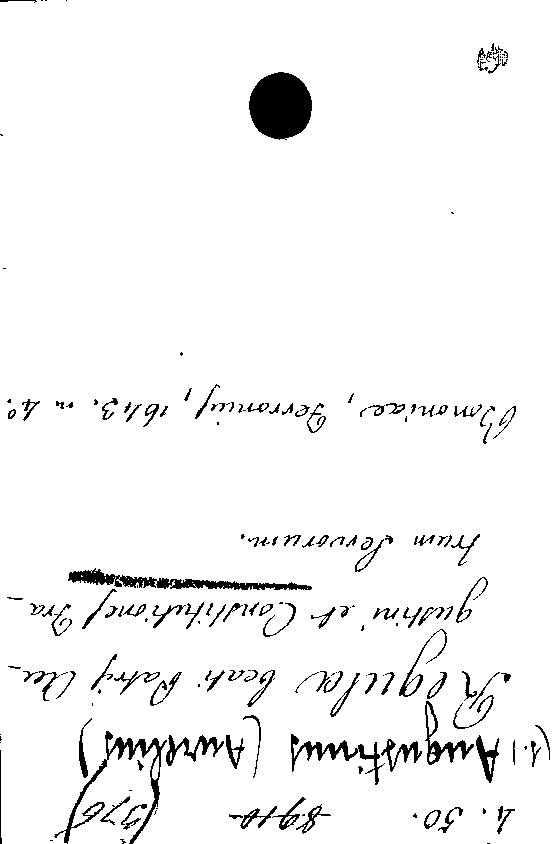 4. 50. 8910 (576)
(S.) Augustinus (Aurelius)
Regula beati Patris Au-
gustini et Constitutiones Fra-
trum Servorum.
Bononiae, Ferronius, 1643. in 4°.